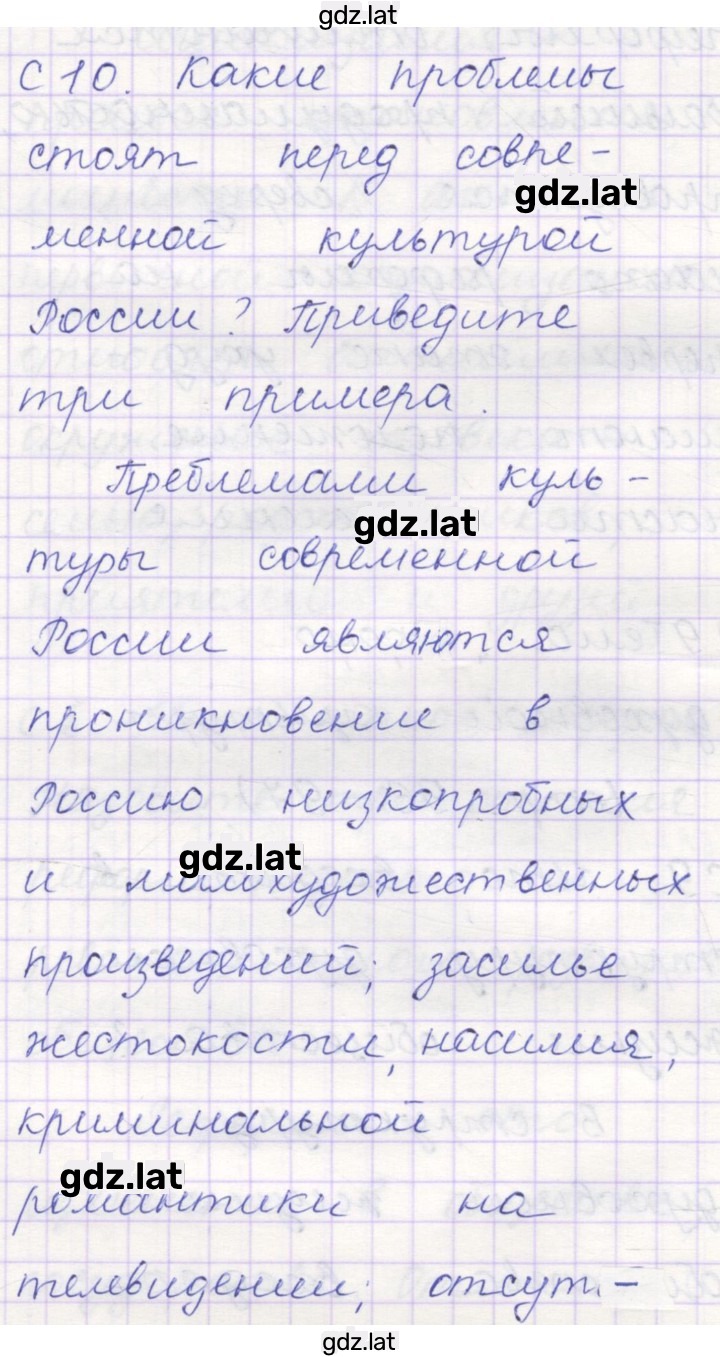 gdz.lat
С 10. Какие проблемы
стоят перед совре-
gdz.lat
менной культурой
России? Приведите
три примера.
Преблемами куль-
gdz.lat
туры современной
России являются
проникновение в
Россию низкопробных
gdz.lat
и малохудожественных
произведений; засилье
жестокости, насилия,
криминальной
gdz.lat
романтики на
телевидении; отсут-
gdz.lat